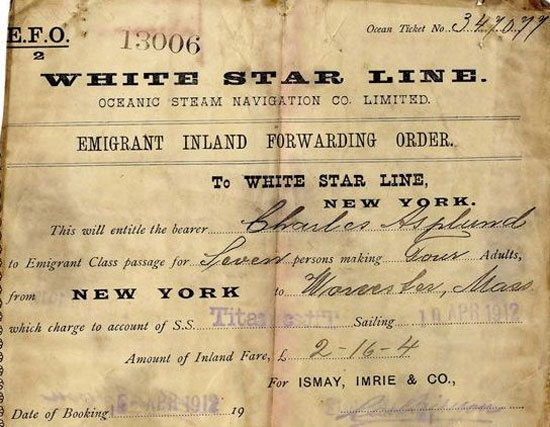 E.F.O.
2
13006
Ocean Ticket No. 347077
WHITE STAR LINE.
OCEANIC STEAM NAVIGATION CO. LIMITED.
EMIGRANT INLAND FORWARDING ORDER.
To WHITE STAR LINE,
NEW YORK.
This will entitle the bearer Charles Asplund
to Emigrant Class passage for Seven persons making Four Adults,
from NEW YORK to Worcester, Mass
which charge to account of S.S. Titanic Sailing 10 APR 1912
Amount of Inland Fare, £ 2-16-4
For ISMAY, IMRIE & CO.,
Date of Booking 19